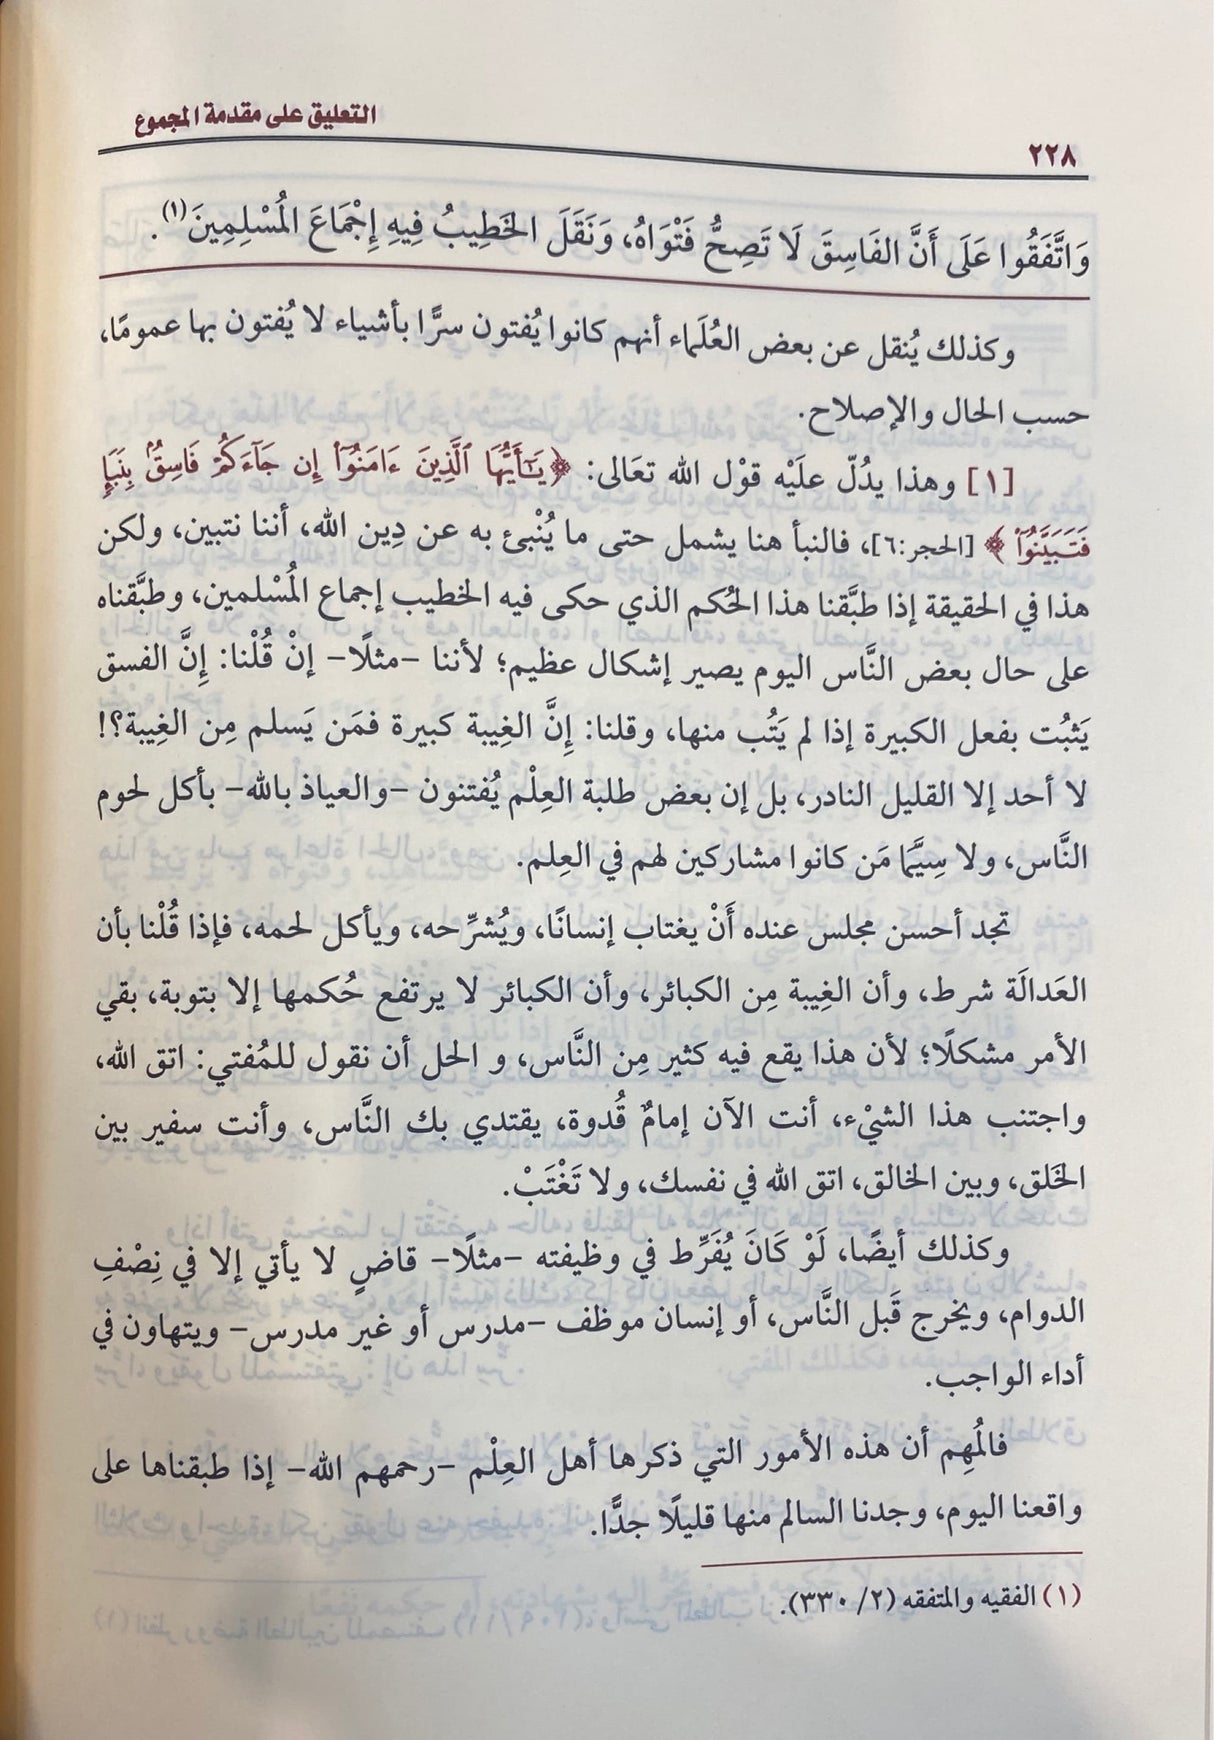 التعليق على مقدمة المجموع
٢٢٨
وَاتَّفَقُوا عَلَى أَنَّ الفَاسِقَ لَا تَصِحُّ فَتْوَاهُ، وَنَقَلَ الخَطِيبُ فِيهِ إِجْمَاعَ المُسْلِمِينَ(١).
وكذلك يُنقل عن بعض العُلَماء أنهم كانوا يُفتون سرًّا بأشياء لا يُفتون بها عمومًا،
حسب الحال والإصلاح.
[١] وهذا يدُلّ علَيْه قوْل الله تعَالى: ﴿يَٰٓأَيُّهَا ٱلَّذِينَ ءَامَنُوٓا۟ إِن جَآءَكُمْ فَاسِقٌۢ بِنَبَإٍ
فَتَبَيَّنُوٓا۟﴾ [الحجر:٦]، فالنبأ هنا يشمل حتى ما يُنْبئ به عن دِين الله، أننا نتبين، ولكن
هذا في الحقيقة إذا طبَّقنا هذا الحُكم الذي حكى فيه الخطيب إجماع المُسْلمين، وطبَّقناه
على حال بعض النَّاس اليوم يصير إشكال عظيم؛ لأننا –مثلًا– إنْ قُلْنا: إِنَّ الفسق
يَثبُت بفعل الكبيرة إذا لم يَتُب منها، وقلنا: إِنَّ الغِيبة كبيرة فمَن يَسلم مِن الغِيبة؟!
لا أحد إلا القليل النادر، بل إن بعض طلبة العِلْم يُفتنون –والعياذ بالله– بأكل لحوم
النَّاس، ولا سِيَّمَا مَن كانوا مشاركين لهم في العِلم.
تجد أحسن مجلس عنده أَنْ يغتاب إنسانًا، ويُشرِّحه، ويأكل لحمه، فإذا قُلْنا بأن
العَدالَة شرط، وأن الغِيبة مِن الكبائر، وأن الكبائر لا يرتفع حُكمها إلا بتوبة، بقي
الأمر مشكلًا؛ لأن هذا يقع فيه كثير مِن النَّاس، و الحل أن نقول للمُفتي: اتق الله،
واجتنب هذا الشيْء، أنت الآن إمامٌ قُدوة، يقتدي بك النَّاس، وأنت سفير بين
الخَلق، وبين الخالق، اتق الله في نفسك، ولا تَغْتَبْ.
وكذلك أيضًا، لَوْ كَانَ يُفَرِّط في وظيفته –مثلًا– قاضٍ لا يأتي إلا في نِصْفِ
الدوام، ويخرج قَبل النَّاس، أو إنسان موظف –مدرس أو غير مدرس– ويتهاون في
أداء الواجب.
فالمُهِم أن هذه الأمور التي ذكرها أهل العِلْم –رحمهم الله– إذا طبقناها على
واقعنا اليوم، وجدنا السالم منها قليلًا جدًّا.
(١) الفقيه والمتفقه (٢/ ٣٣٠).